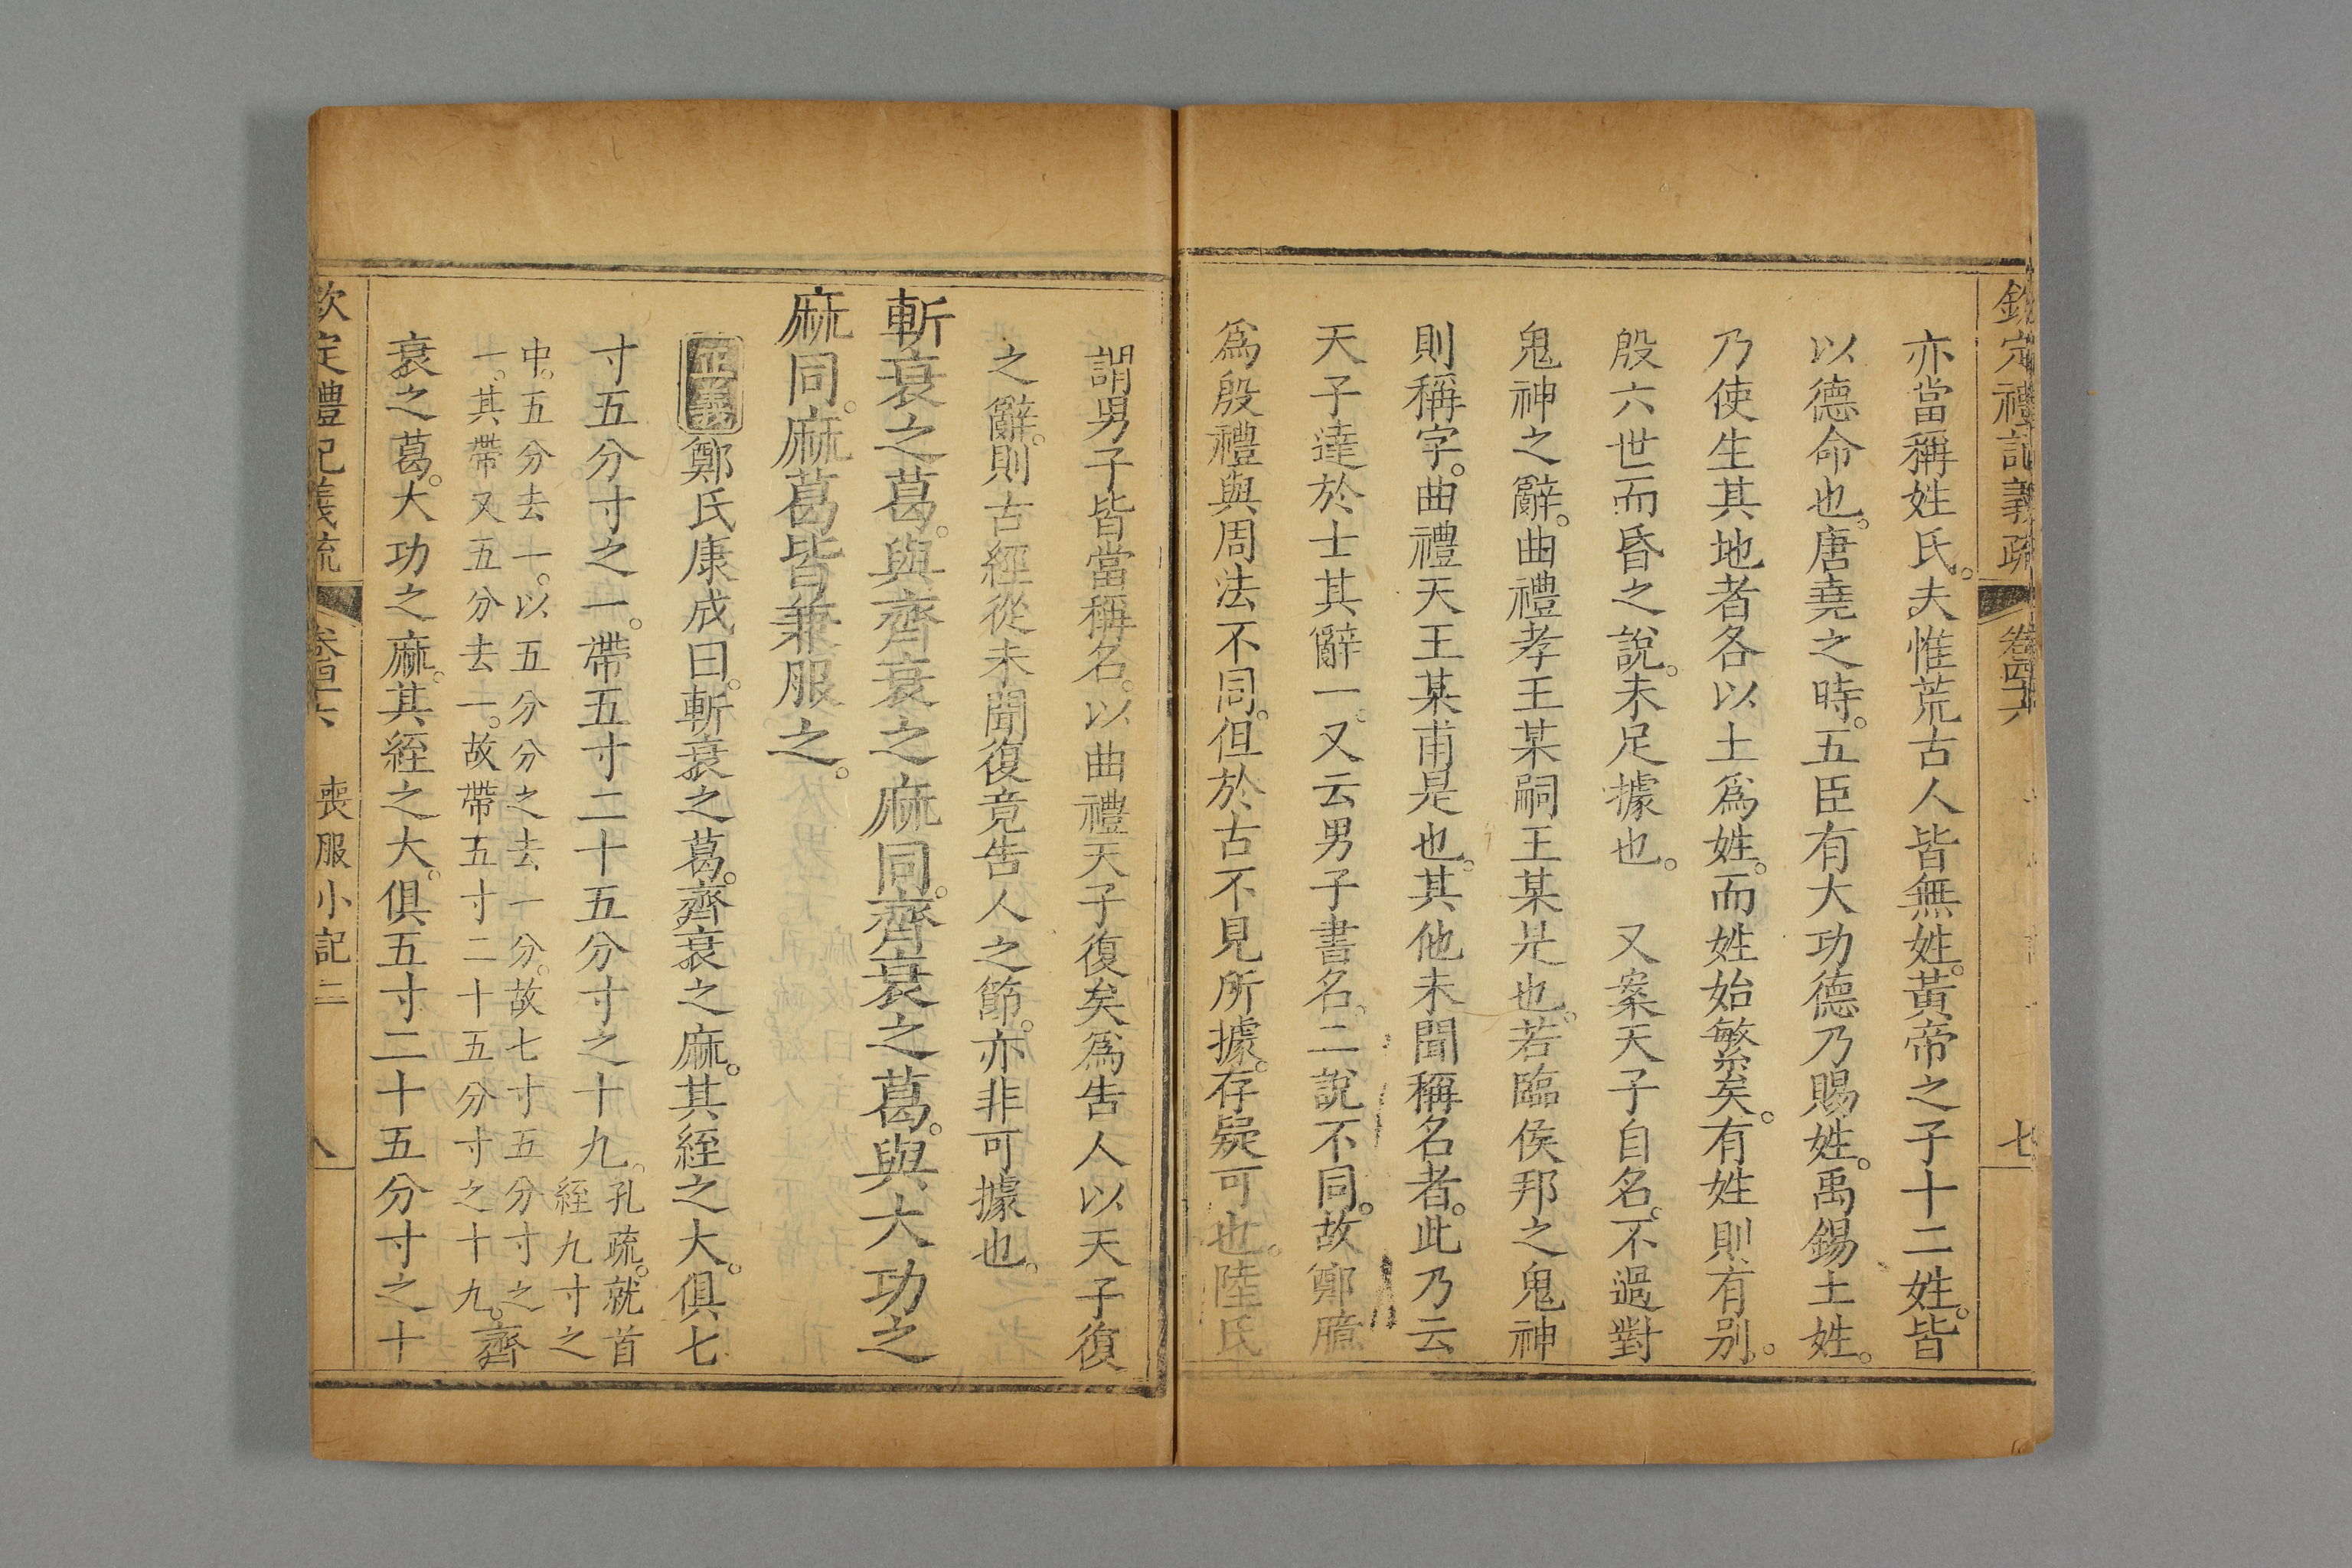 欽定禮記義疏 卷四十六 七
亦當稱姓氏。夫惟荒古人皆無姓。黃帝之子十二姓。皆
以德命也。唐堯之時。五臣有大功德乃賜姓。禹錫土姓。
乃使生其地者各以土爲姓。而姓始繁矣。有姓則有別。
殷六世而昏之說。未足據也。 又案天子自名。不過對
鬼神之辭。曲禮孝王某嗣王某是也。若臨侯邦之鬼神
則稱字。曲禮天王某甫是也。其他未聞稱名者。此乃云
天子達於士其辭一。又云男子書名。二說不同。故鄭臆
爲殷禮與周法不同。但於古不見所據。存疑可也。陸氏
謂男子皆當稱名。以曲禮天子復矣爲告人以天子復
之辭。則古經從未聞復竟告人之節。亦非可據也。
斬衰之葛。與齊衰之麻同。齊衰之葛。與大功之
麻同。麻葛皆兼服之。
正義 鄭氏康成曰。斬衰之葛。齊衰之麻。其絰之大。俱七
寸五分寸之一。帶五寸二十五分寸之十九。孔疏。就首
絰九寸之
中。五分去一。以五分分之去一分。故七寸五分寸之
一。其帶又五分去一。故帶五寸二十五分寸之十九。齊
衰之葛。大功之麻。其絰之大。俱五寸二十五分寸之十
欽定禮記義疏 卷四十六 喪服小記二 八